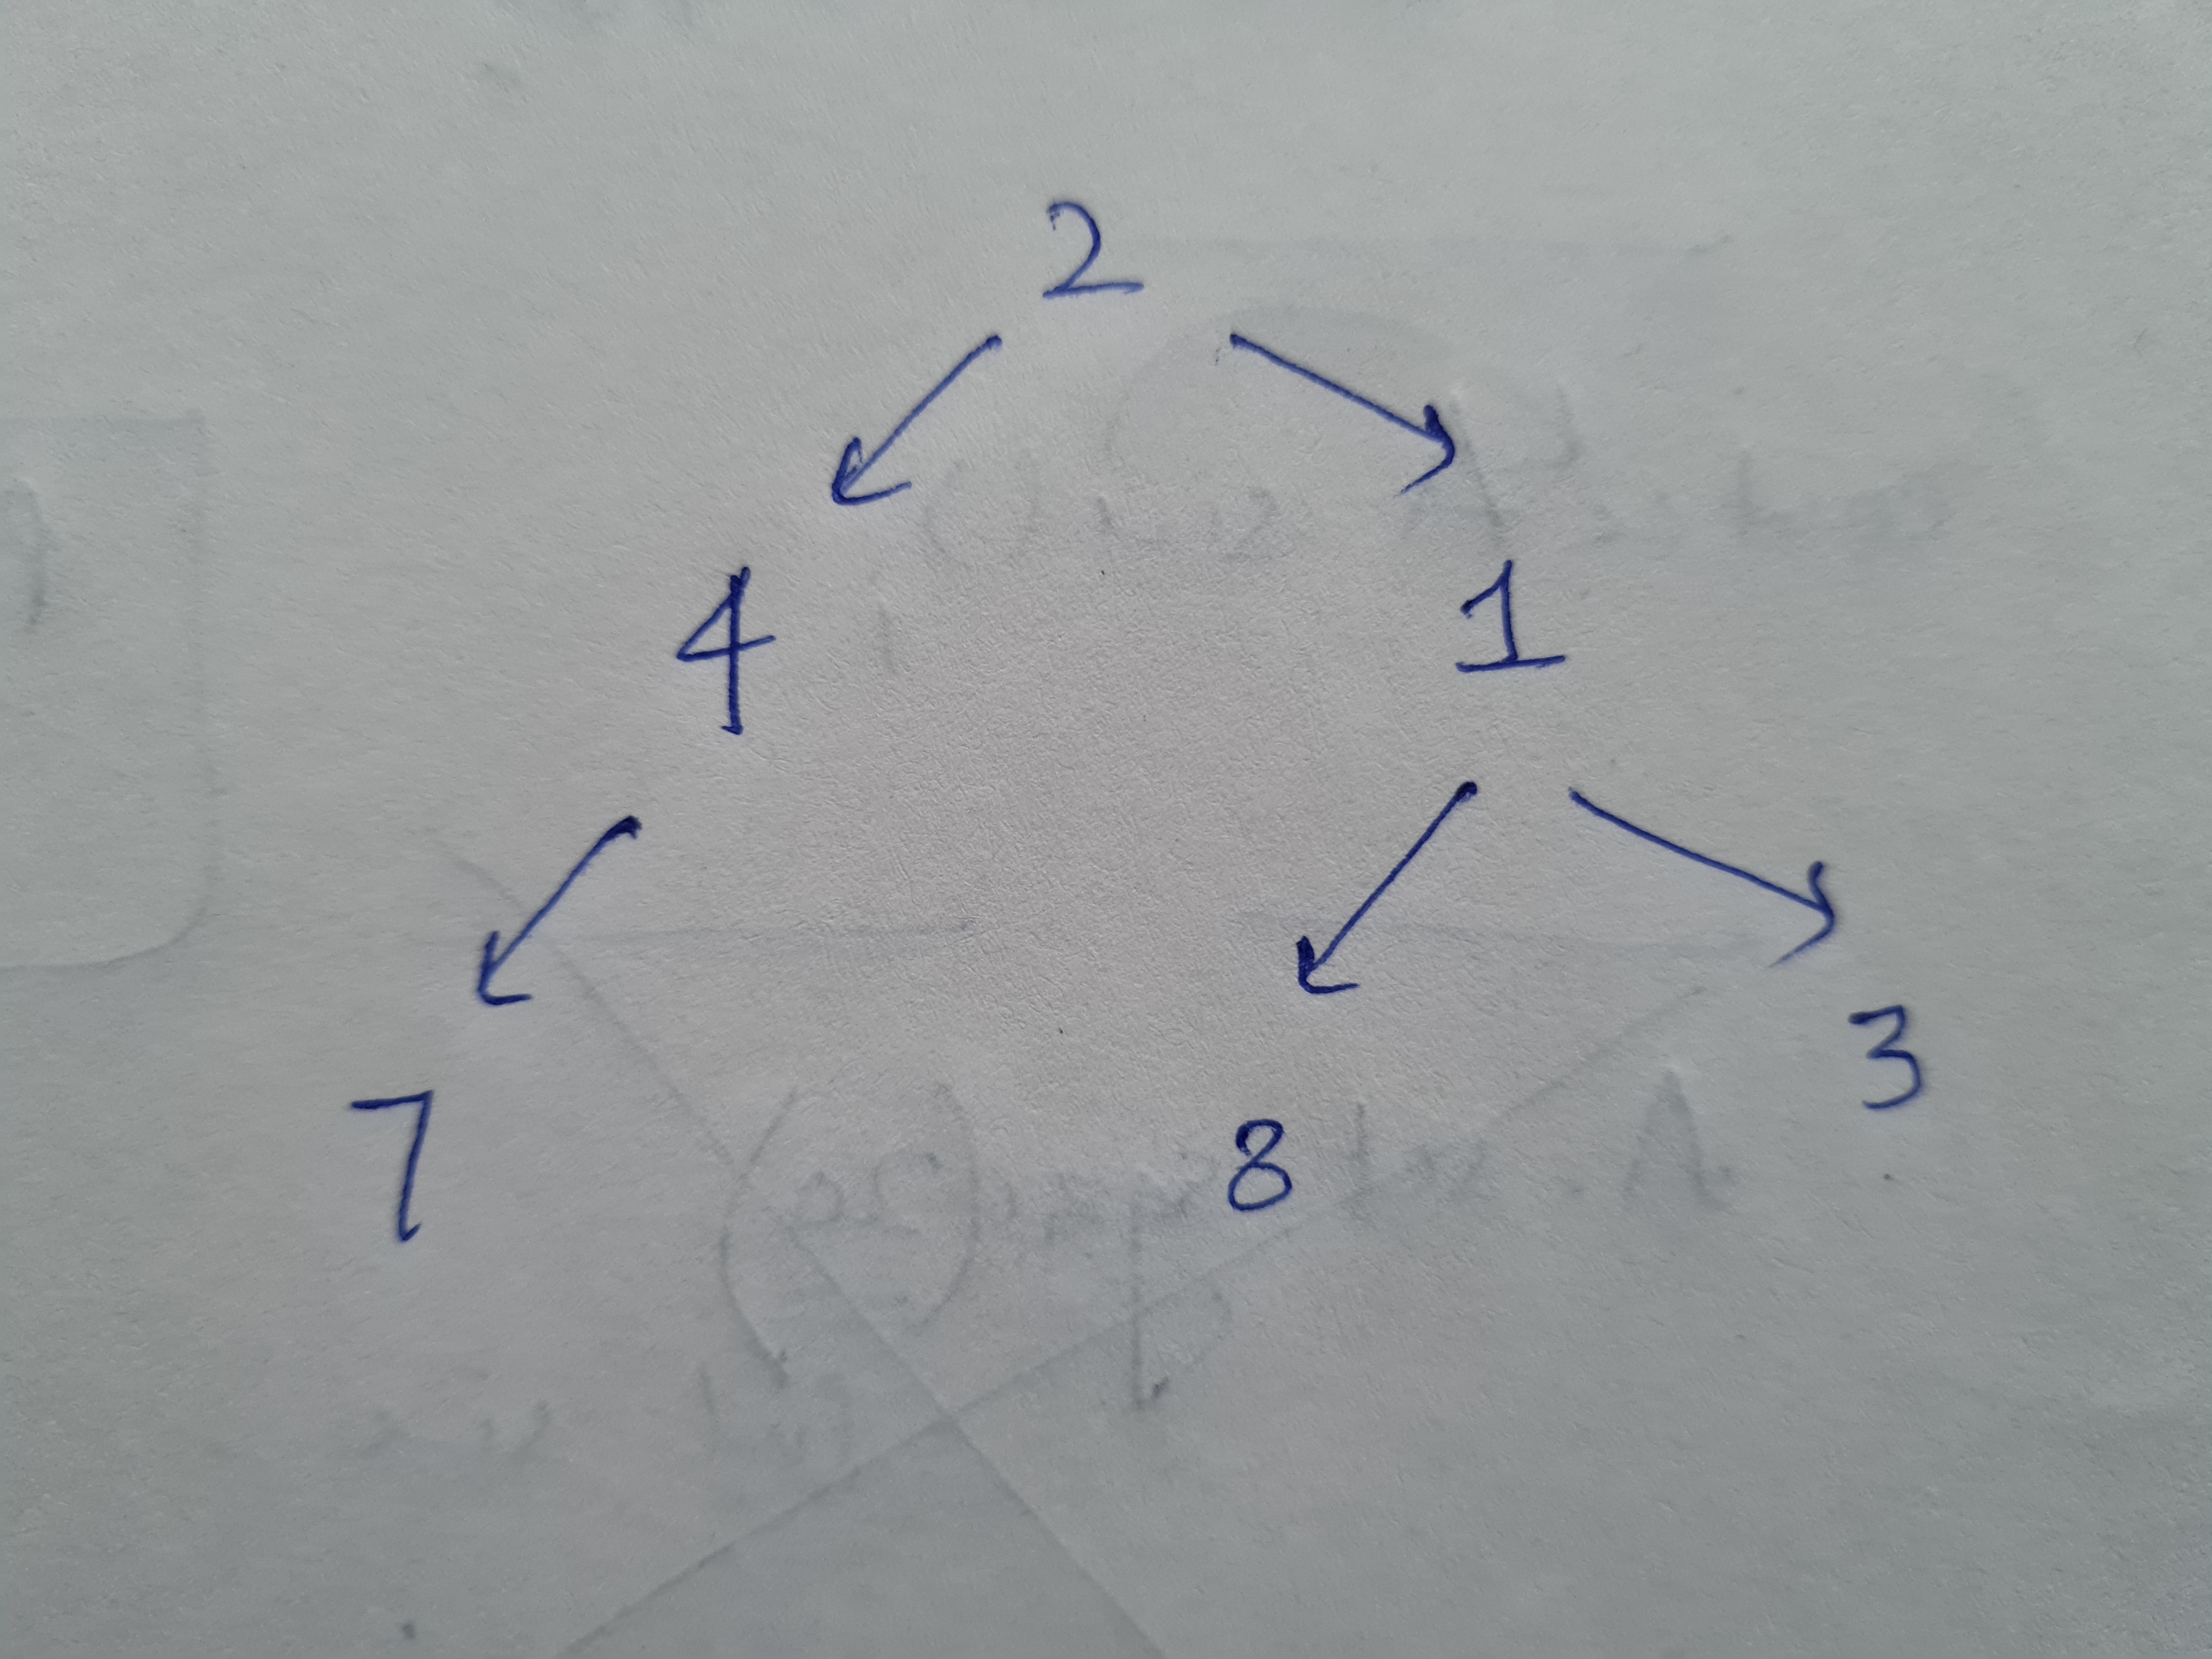 2
4 1
7 8 3